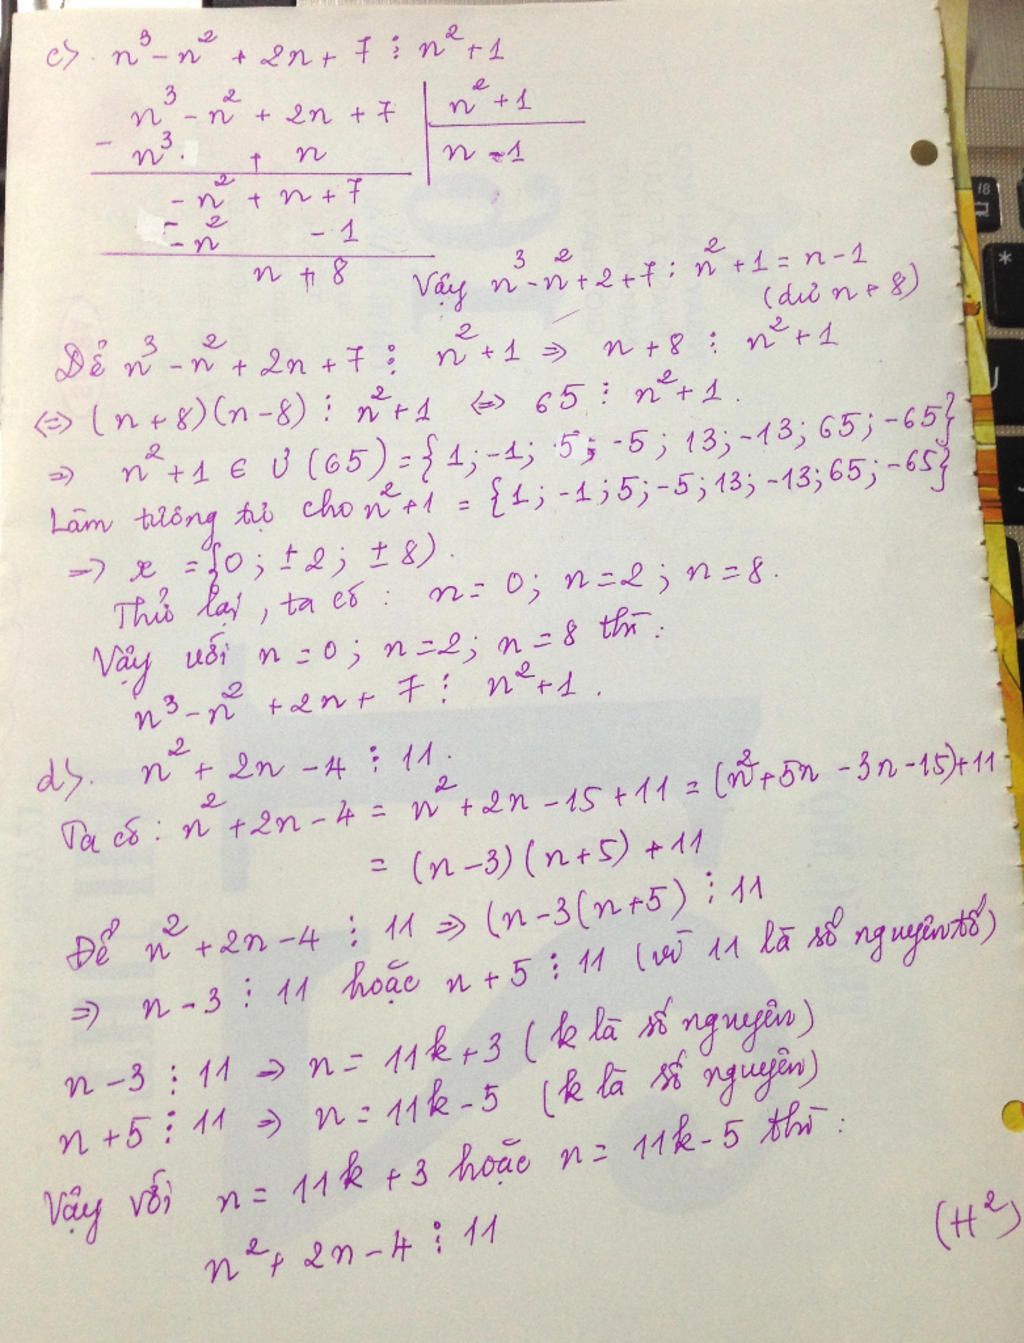 c). n³ - n² + 2n + 7 ⋮ n² + 1
n³ - n² + 2n + 7 | n² + 1
- n³ + n | n - 1
- n² + n + 7
- - n² - 1
n + 8
Vậy n³ - n² + 2 + 7 : n² + 1 = n - 1
(dư n + 8)
Để n³ - n² + 2n + 7 ⋮ n² + 1 ⇒ n + 8 ⋮ n² + 1
⇔ (n + 8)(n - 8) ⋮ n² + 1 ⇔ 65 ⋮ n² + 1.
⇒ n² + 1 ∈ Ư(65) = {1; -1; 5; -5; 13; -13; 65; -65}
Làm tương tự cho n² + 1 = {1; -1; 5; -5; 13; -13; 65; -65}
⇒ x = {0; ±2; ±8).
Thử lại, ta có: n = 0; n = 2; n = 8.
Vậy với n = 0; n = 2; n = 8 thì:
n³ - n² + 2n + 7 ⋮ n² + 1.
d). n² + 2n - 4 ⋮ 11.
Ta có: n² + 2n - 4 = n² + 2n - 15 + 11 = (n² + 5n - 3n - 15) + 11
= (n - 3)(n + 5) + 11
Để n² + 2n - 4 ⋮ 11 ⇒ (n - 3(n + 5) ⋮ 11
⇒ n - 3 ⋮ 11 hoặc n + 5 ⋮ 11 (vì 11 là số nguyên tố)
n - 3 ⋮ 11 ⇒ n = 11k + 3 (k là số nguyên)
n + 5 ⋮ 11 ⇒ n = 11k - 5 (k là số nguyên)
Vậy với n = 11k + 3 hoặc n = 11k - 5 thì:
n² + 2n - 4 ⋮ 11
(H²)